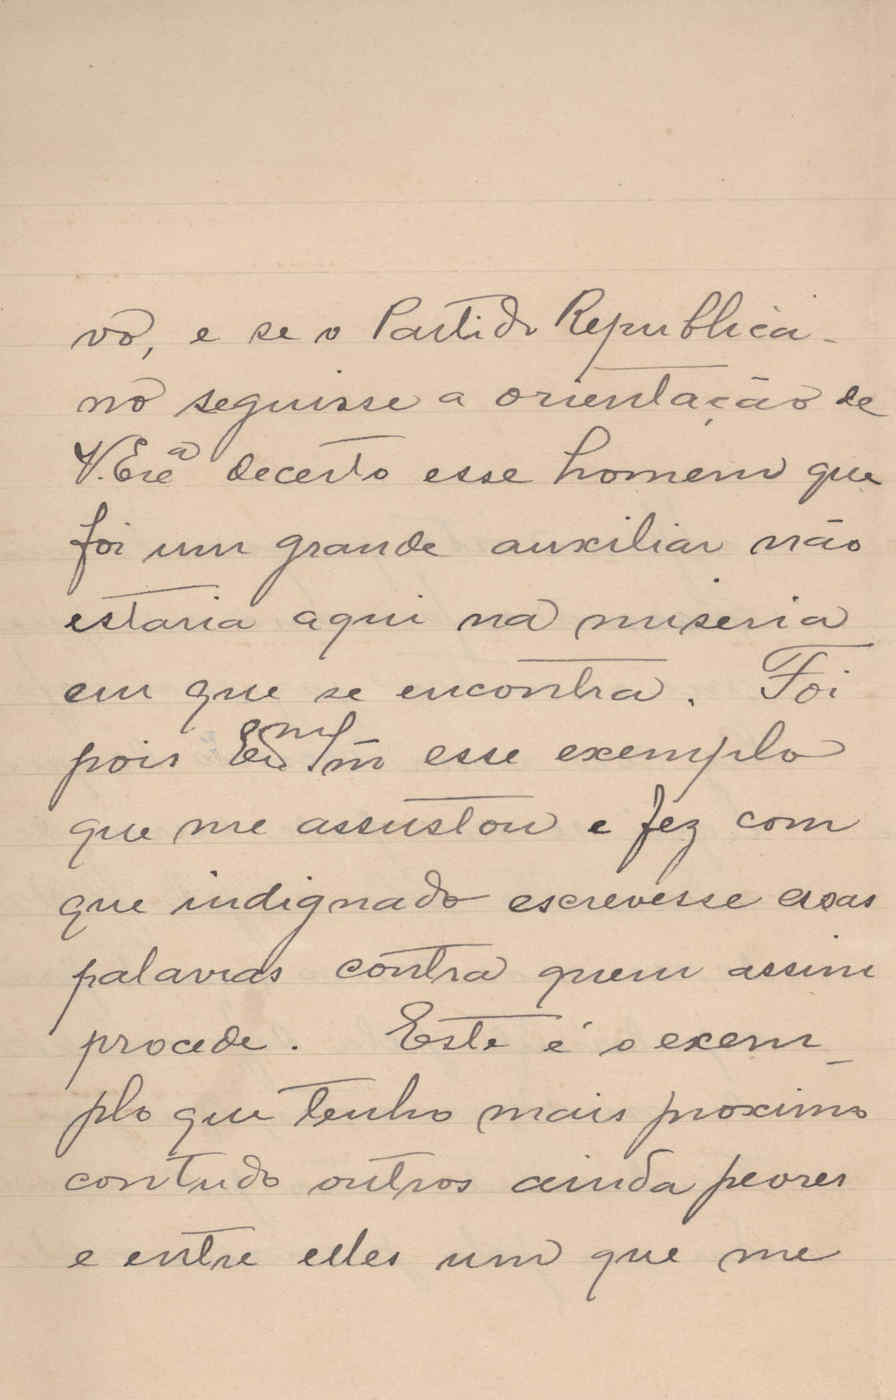 vo, e se o Partido Republica-
no seguisse a orientação de
V. Exª decerto esse homem que
foi um grande auxiliar não
estaria aqui na miseria
em que se encontra. Foi
pois Exmº Sñr esse exemplo
que me assustou e fez com
que indignado escrevesse essas
palavras contra quem assim
procede. Este é o exem-
plo que tenho mais proximo
contudo outros ainda peores
e entre elles um que me